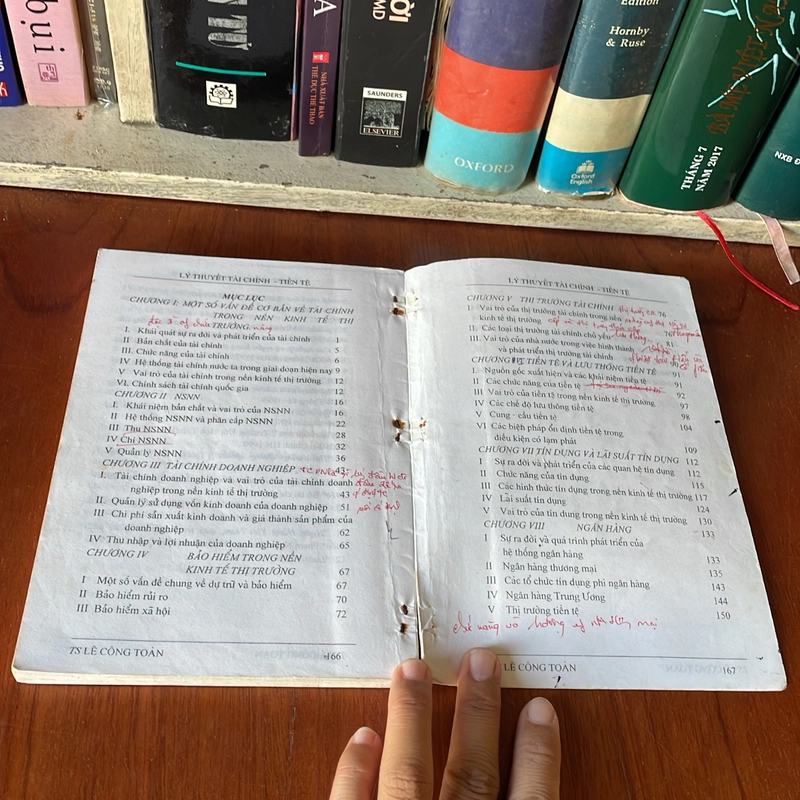 bụi
SAUNDERS
ELSEVIER
NHÀ XUẤT BẢN
THỂ DỤC THỂ THAO
OXFORD
Edition
Hornby
& Ruse
Oxford
English
THÁNG 7
NĂM 2017
LÝ THUYẾT TÀI CHÍNH - TIỀN TỆ
MỤC LỤC
CHƯƠNG I: MỘT SỐ VẤN ĐỀ CƠ BẢN VỀ TÀI CHÍNH
TRONG NỀN KINH TẾ THỊ
TRƯỜNG
I. Khái quát sự ra đời và phát triển của tài chính 1
II Bản chất của tài chính 5
III. Chức năng của tài chính 6
IV Hệ thống tài chính nước ta trong giai đoạn hiện nay 9
V Vai trò của tài chính trong nền kinh tế thị trường 12
VI. Chính sách tài chính quốc gia 12
CHƯƠNG II NSNN 16
I. Khái niệm bản chất và vai trò của NSNN 16
II Hệ thống NSNN và phân cấp NSNN 22
III Thu NSNN 28
IV Chi NSNN 32
V Quản lý NSNN 36
CHƯƠNG III TÀI CHÍNH DOANH NGHIỆP 43
I. Tài chính doanh nghiệp và vai trò của tài chính doanh
nghiệp trong nền kinh tế thị trường 43
II. Quản lý sử dụng vốn kinh doanh của doanh nghiệp 51
III Chi phí sản xuất kinh doanh và giá thành sản phẩm của
doanh nghiệp 62
IV Thu nhập và lợi nhuận của doanh nghiệp 65
CHƯƠNG IV BẢO HIỂM TRONG NỀN
KINH TẾ THỊ TRƯỜNG 67
I Một số vấn đề chung về dự trữ và bảo hiểm 67
II Bảo hiểm rủi ro 70
III Bảo hiểm xã hội 72
TS LÊ CÔNG TOÀN 166
LÝ THUYẾT TÀI CHÍNH - TIỀN TỆ
CHƯƠNG V THỊ TRƯỜNG TÀI CHÍNH 76
I Vai trò của thị trường tài chính trong nền
kinh tế thị trường
II. Các loại thị trường tài chính chủ yếu 76
III. Vai trò của nhà nước trong việc hình thành
và phát triển thị trường tài chính
CHƯƠNG VI TIỀN TỆ VÀ LƯU THÔNG TIỀN TỆ
I. Nguồn gốc xuất hiện và các khái niệm tiền tệ 91
II Các chức năng của tiền tệ 92
III Vai trò của tiền tệ trong nền kinh tế thị trường 97
IV Các chế độ lưu thông tiền tệ 98
V Cung - cầu tiền tệ 104
VI Các biện pháp ổn định tiền tệ trong
điều kiện có lạm phát 109
CHƯƠNG VII TÍN DỤNG VÀ LÃI SUẤT TÍN DỤNG 112
I Sự ra đời và phát triển của các quan hệ tín dụng 112
II Chức năng của tín dụng 115
III Các hình thức tín dụng trong nền kinh tế thị trường 117
IV Lãi suất tín dụng 124
V Vai trò của tín dụng trong nền kinh tế thị trường 130
CHƯƠNG VIII NGÂN HÀNG
I Sự ra đời và quá trình phát triển của
hệ thống ngân hàng 133
II Ngân hàng thương mại 135
III Các tổ chức tín dụng phi ngân hàng 143
IV Ngân hàng Trung Ương 144
V Thị trường tiền tệ 150
LÊ CÔNG TOÀN 167